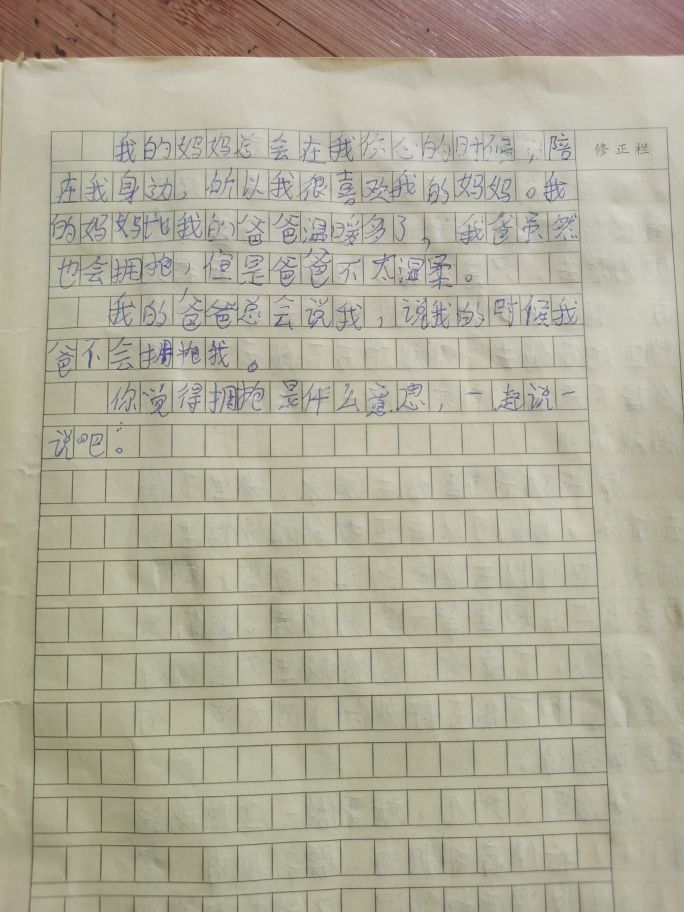 我的妈妈总会在我伤心的时候，陪
修正栏
在我身边，所以我很喜欢我的妈妈。我
的妈妈比我的爸爸温暖多了，我爸虽然
也会拥抱，但是爸爸不太温柔。
我的爸爸总会说我，说我的时候我
爸不会拥抱我。
你觉得拥抱是什么意思，一起说一
说吧！